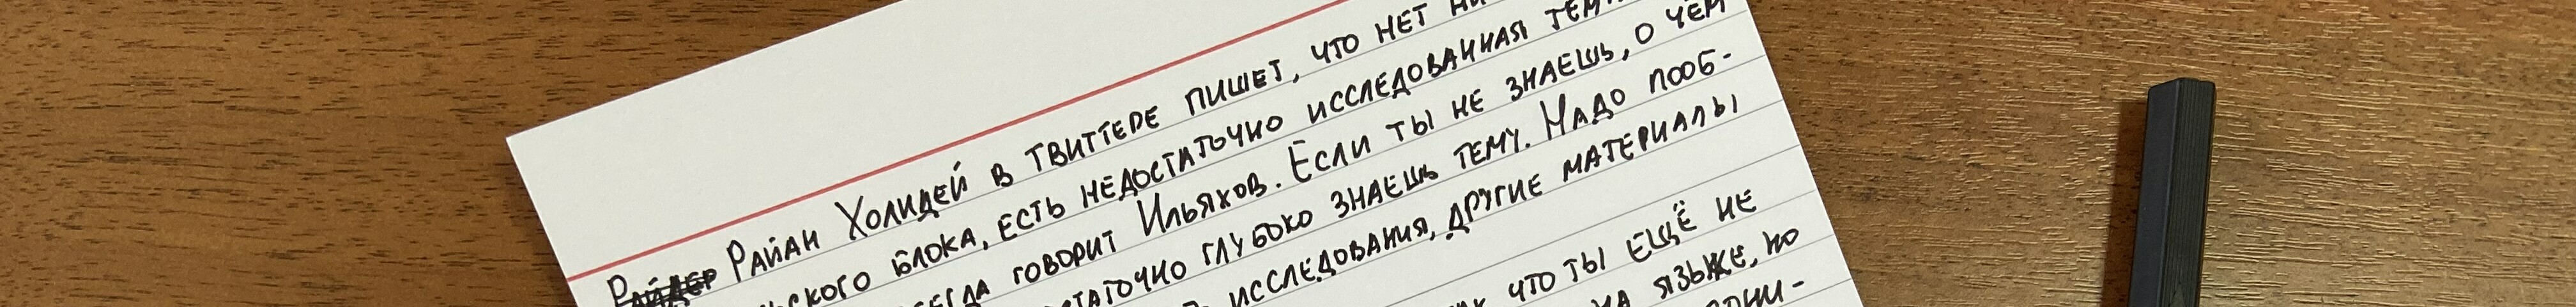 Райдер Райан Холидей в твиттере пишет, что нет
блока, есть недостаточно исследованная
говорит Ильяхов. Если ты не знаешь, о чём
глубоко знаешь тему. Надо пооб-
исследования, другие материалы
что ты ещё не
языке, но